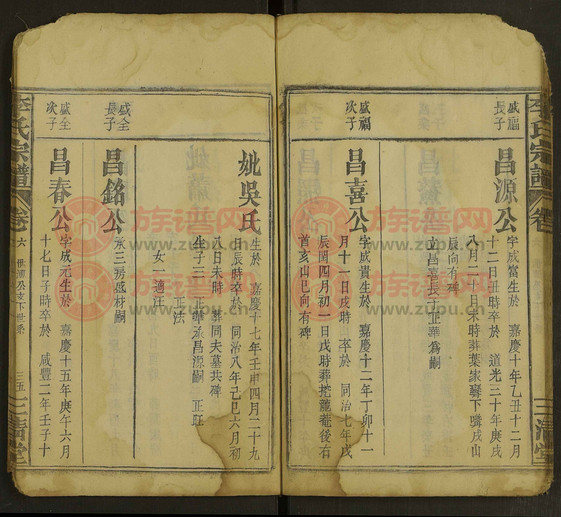 李氏宗譜
卷
三清堂
盛福
長子
昌源公
字成富生於 嘉慶十年乙丑十二月
十二日丑時卒於 道光三十年庚戌
八月二十日未時葬葉家驛下
辰向有碑
立昌喜長子正華為嗣
盛福
次子
昌喜公
字成貴生於 嘉慶十二年丁卯十一
月十一日戌時卒於 同治七年戌
辰閏四月初一日戌時葬挖龍菴後右
首亥山巳向有碑
妣吳氏
生於 嘉慶十七年壬申四月二十九
日辰時卒於 同治八年己巳六月初
八日未時 葬同夫墓有碑
生子三 正華承昌源嗣 正旺
正法
女一適汪
盛全
長子
昌銘公
承三房盛材嗣
盛全
次子
昌春公
字成元生於 嘉慶十五年庚午六月
十七日子時卒於 咸豐二年壬子十
李氏宗譜
卷六
三五
三清堂
族谱网
www.zupu.cn